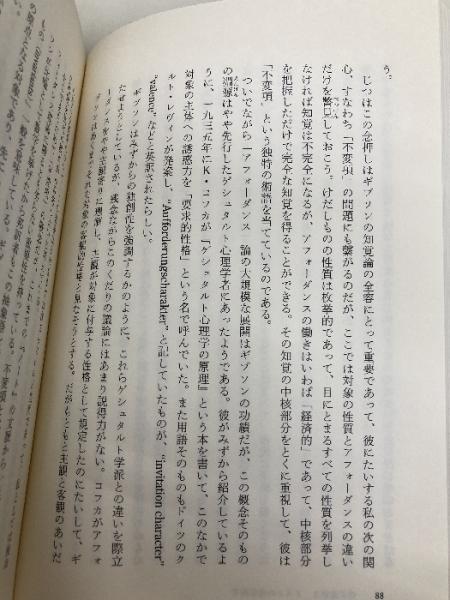 う。
じつはこの念押しはギブソンの知覚論の全容にとって重要であって、彼にたいする私の次の関
心、すなわち「不変項」の問題にも繋がるのだが、ここでは対象の性質とアフォーダンスの違い
だけを瞥見しておこう。けだしものの性質は枚挙的であって、目にとまるすべての性質を列挙し
なければ知覚は不完全になるが、アフォーダンスの働きはいわば「経済的」であって、中核部分
を把握しただけで完全な知覚を得ることができる。その知覚の中核部分をとくに重視して、彼は
「不変項」という独特の術語を当てているのである。
ついでながら「アフォーダンス」論の大規模な展開はギブソンの功績だが、この概念そのもの
の淵源はやや先行したゲシュタルト心理学者にあったようである。彼がみずから紹介しているよ
うに、一九三五年にK・コフカが『ゲシュタルト心理学の原理』という本を書いて、このなかで
対象の主体への誘惑力を「要求的性格」という名で呼んでいた。また用語そのものもドイツのク
ルト・レヴィンが発案し、"Aufforderungscharakter" と記していたものが、"invitation character"
"valence" などと英訳されたらしい。
ギブソンはみずからの独創性を強調するかのように、これらゲシュタルト学派との違いを際立
たせようとしているが、残念ながらこのくだりの議論にはあまり説得力がない。コフカがアフォ
ーダンスをやや主観寄りに理解し、主観が対象に付与する性格として規定したのにたいして、ギ
ブソンはあくまでそれを対象の客観的性格と見なそうとする。だがもともと主観と客観のあいだ
88